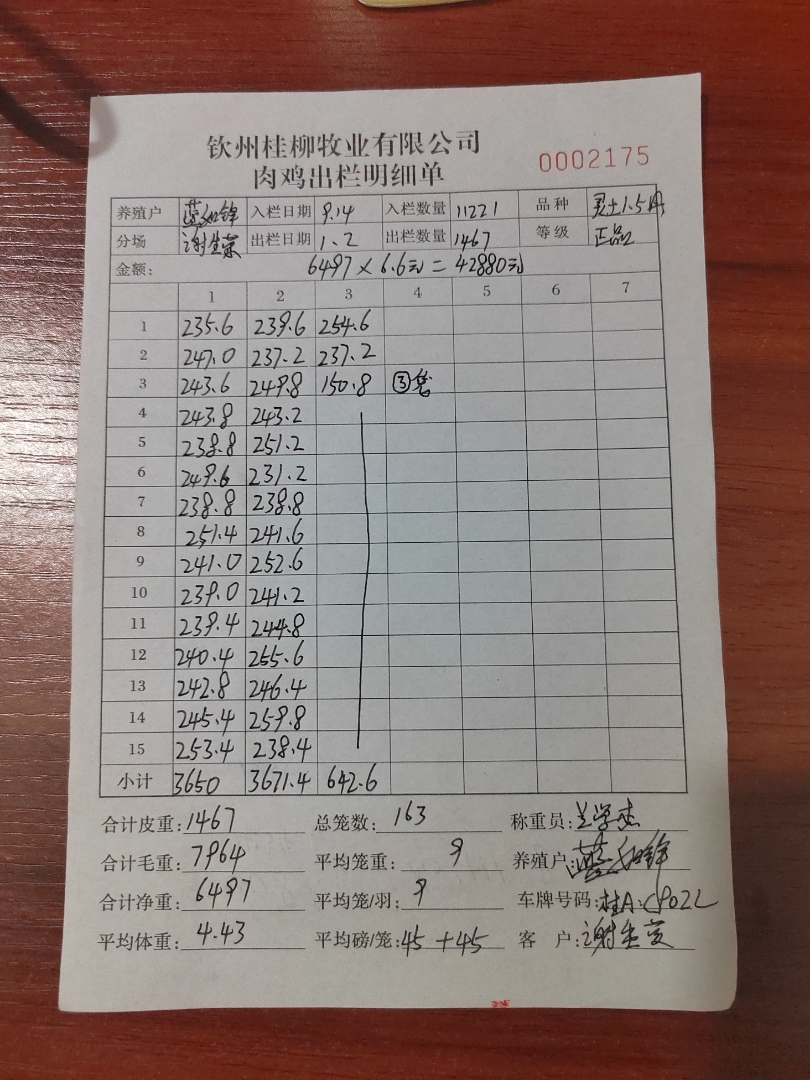 钦州桂柳牧业有限公司
肉鸡出栏明细单
0002175
养殖户 蓝 锋 入栏日期 9.14 入栏数量 11221 品种 土1.5
分场 谢生荣 出栏日期 1.2 出栏数量 1467 等级 正品
金额: 6497×6.6元=42880元
1 2 3 4 5 6 7
1 235.6 239.6 254.6
2 247.0 237.2 237.2
3 243.6 249.8 150.8 ③笼
4 243.8 243.2
5 238.8 251.2
6 249.6 231.2
7 238.8 238.8
8 251.4 241.6
9 241.0 252.6
10 239.0 241.2
11 239.4 244.8
12 240.4 255.6
13 242.8 246.4
14 245.4 259.8
15 253.4 238.4
小计 3650 3671.4 642.6
合计皮重:1467 总笼数:163 称重员:兰学杰
合计毛重:7964 平均笼重:9 养殖户:蓝 锋
合计净重:6497 平均笼/羽:9 车牌号码:桂A:C8022
平均体重:4.43 平均磅/笼:45+45 客 户:谢生荣